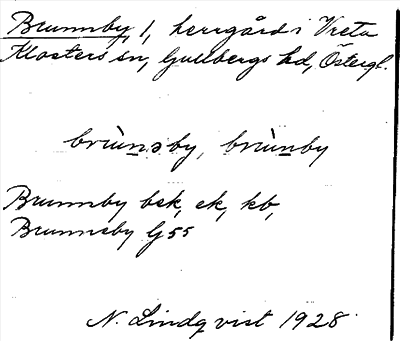 Brunnby 1, herrgård i Vreta
Klosters sn, Gullbergs hd, Östergl.
brùnəby, brùnby
Brunnby bsk, ek, kb,
Brunneby G 55
N. Lindqvist 1928